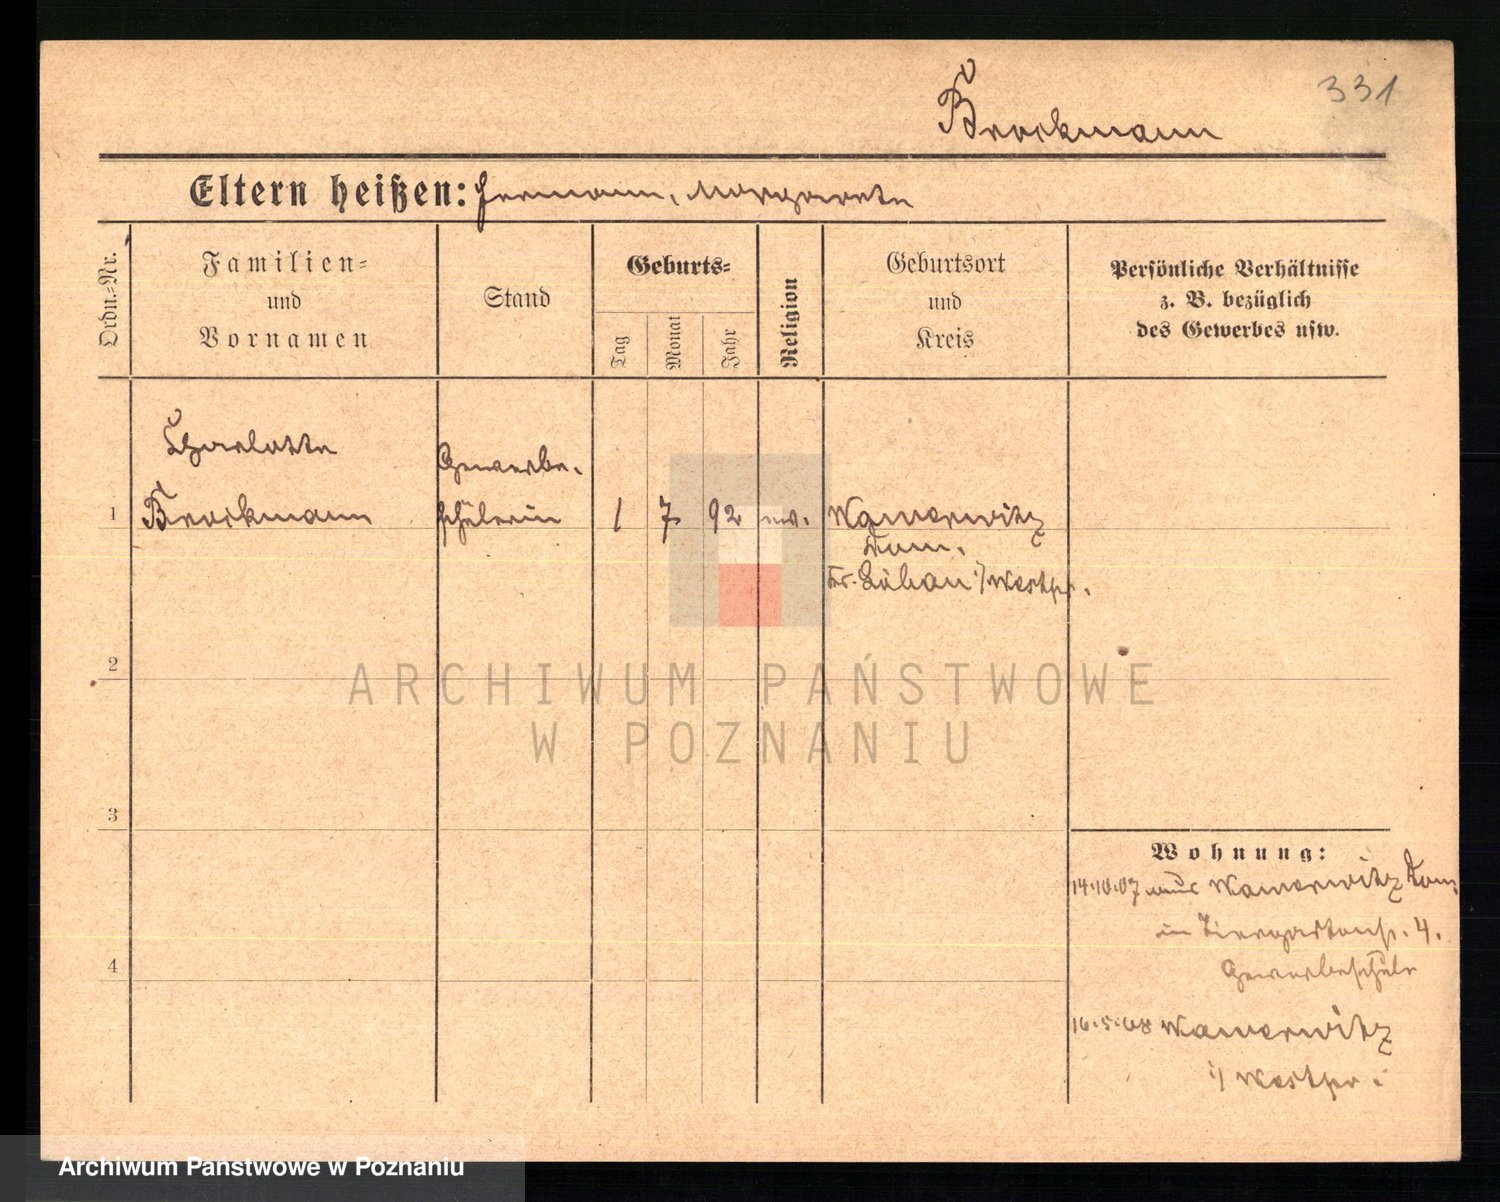 331
Brockmann
Eltern heißen: Hermann, Margarete
Ordn.-Nr.
Familien-
und
Vornamen
Stand
Geburts-
Tag
Monat
Jahr
Religion
Geburtsort
und
Kreis
Persönliche Verhältnisse
z. B. bezüglich
des Gewerbes usw.
Charlotte
Gewerbe-
1 Brockmann schülerin 1 7 92 ev. Wawerwitz
Dom.
Kr. Löbau i/Westpr.
2
3
4
Wohnung:
14.10.07 aus Wawerwitz Dom.
in Tiergartenstr. 4.
Gewerbeschule
16.5.08 Wawerwitz
i/ Westpr.
ARCHIWUM PAŃSTWOWE
W POZNANIU
Archiwum Państwowe w Poznaniu